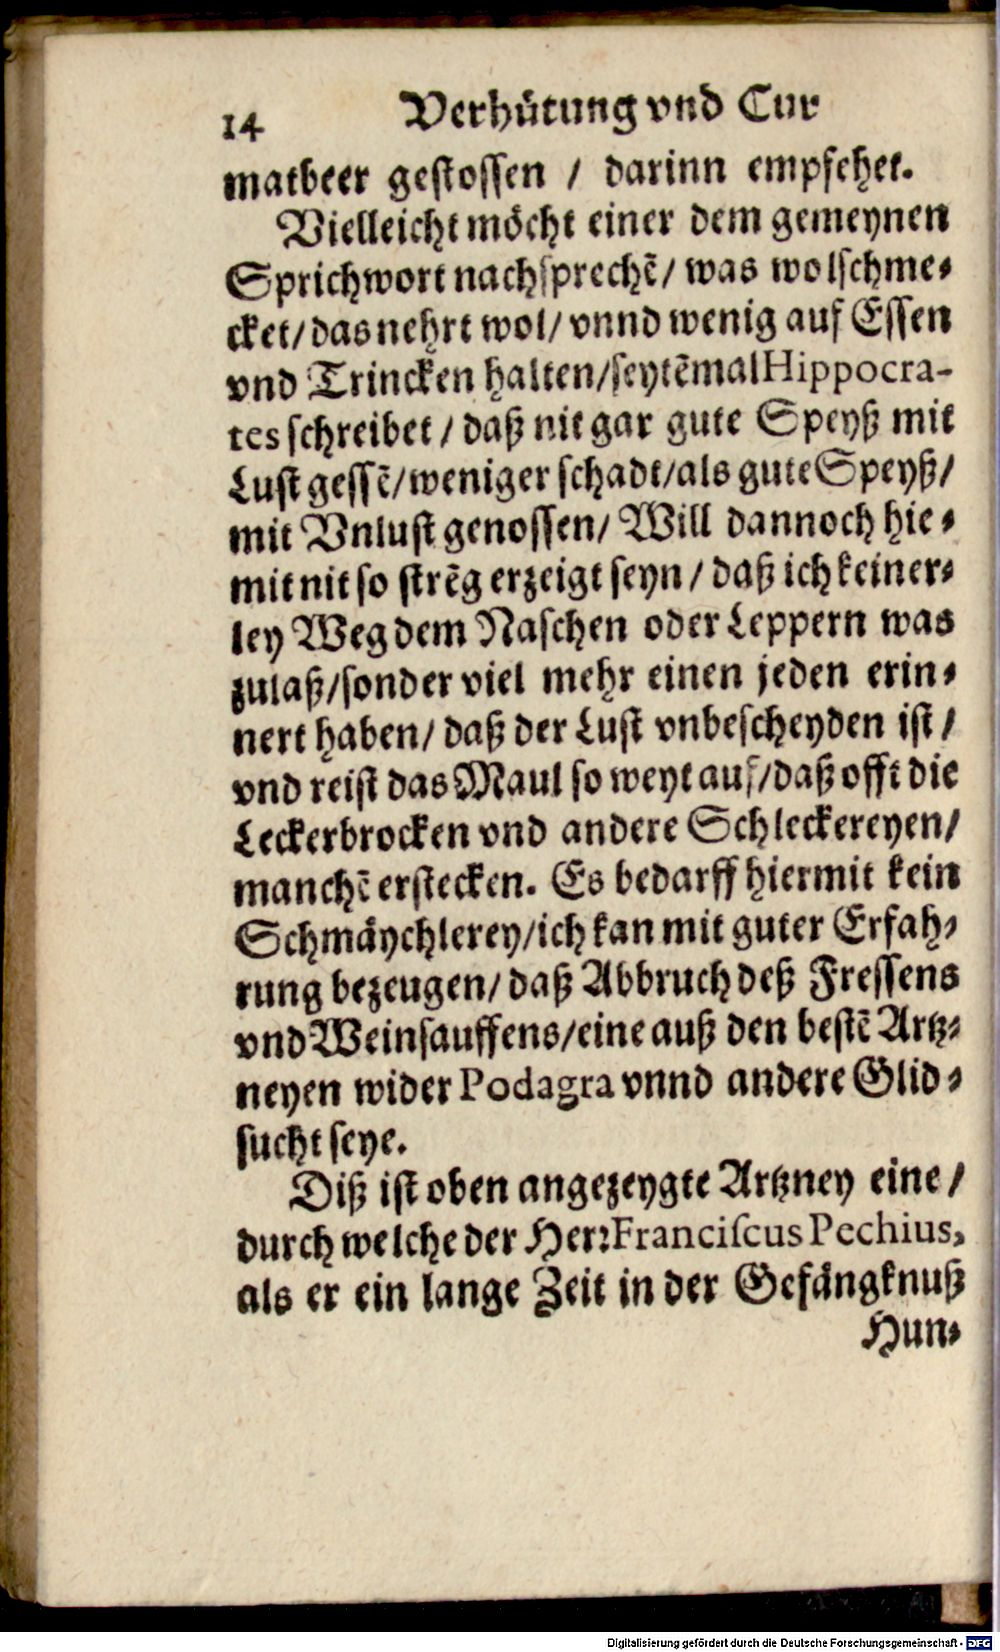 14 Verhütung vnd Cur
matbeer gestossen / darinn empfehet.
Vielleicht möcht einer dem gemeynen
Sprichwort nachsprechẽ/ was wolschme-
cket/ das nehrt wol/ vnnd wenig auf Essen
vnd Trincken halten/seytẽmal Hippocra-
tes schreibet / daß nit gar gute Speyß mit
Lust gessẽ/weniger schadt/als gute Speyß/
mit Vnlust genossen/ Will dannoch hie-
mit nit so strẽg erzeigt seyn / daß ich keiner-
ley Weg dem Naschen oder Leppern was
zulaß/sonder viel mehr einen jeden erin-
nert haben/ daß der Lust vnbescheyden ist /
vnd reist das Maul so weyt auf/daß offt die
Leckerbrocken vnd andere Schleckereyen/
manchẽ erstecken. Es bedarff hiermit kein
Schmäychlerey/ich kan mit guter Erfah-
rung bezeugen/ daß Abbruch deß Fressens
vnd Weinsauffens/eine auß den bestẽ Artz-
neyen wider Podagra vnnd andere Glid-
sucht seye.
Diß ist oben angezeygte Artzney eine /
durch welche der Herr Franciscus Pechius,
als er ein lange Zeit in der Gefängknuß
Hun-
Digitalisierung gefördert durch die Deutsche Forschungsgemeinschaft - DFG